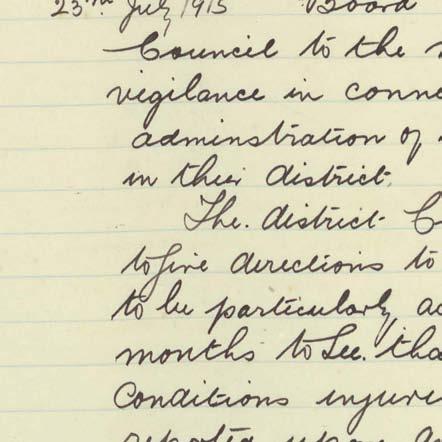 23rd July 1915 Board
Council to the
vigilance in conne
adminstration of
in their district.
The district C
to give directions to
to be particularly ac
months to See. tha
Conditions injuri
reported upon